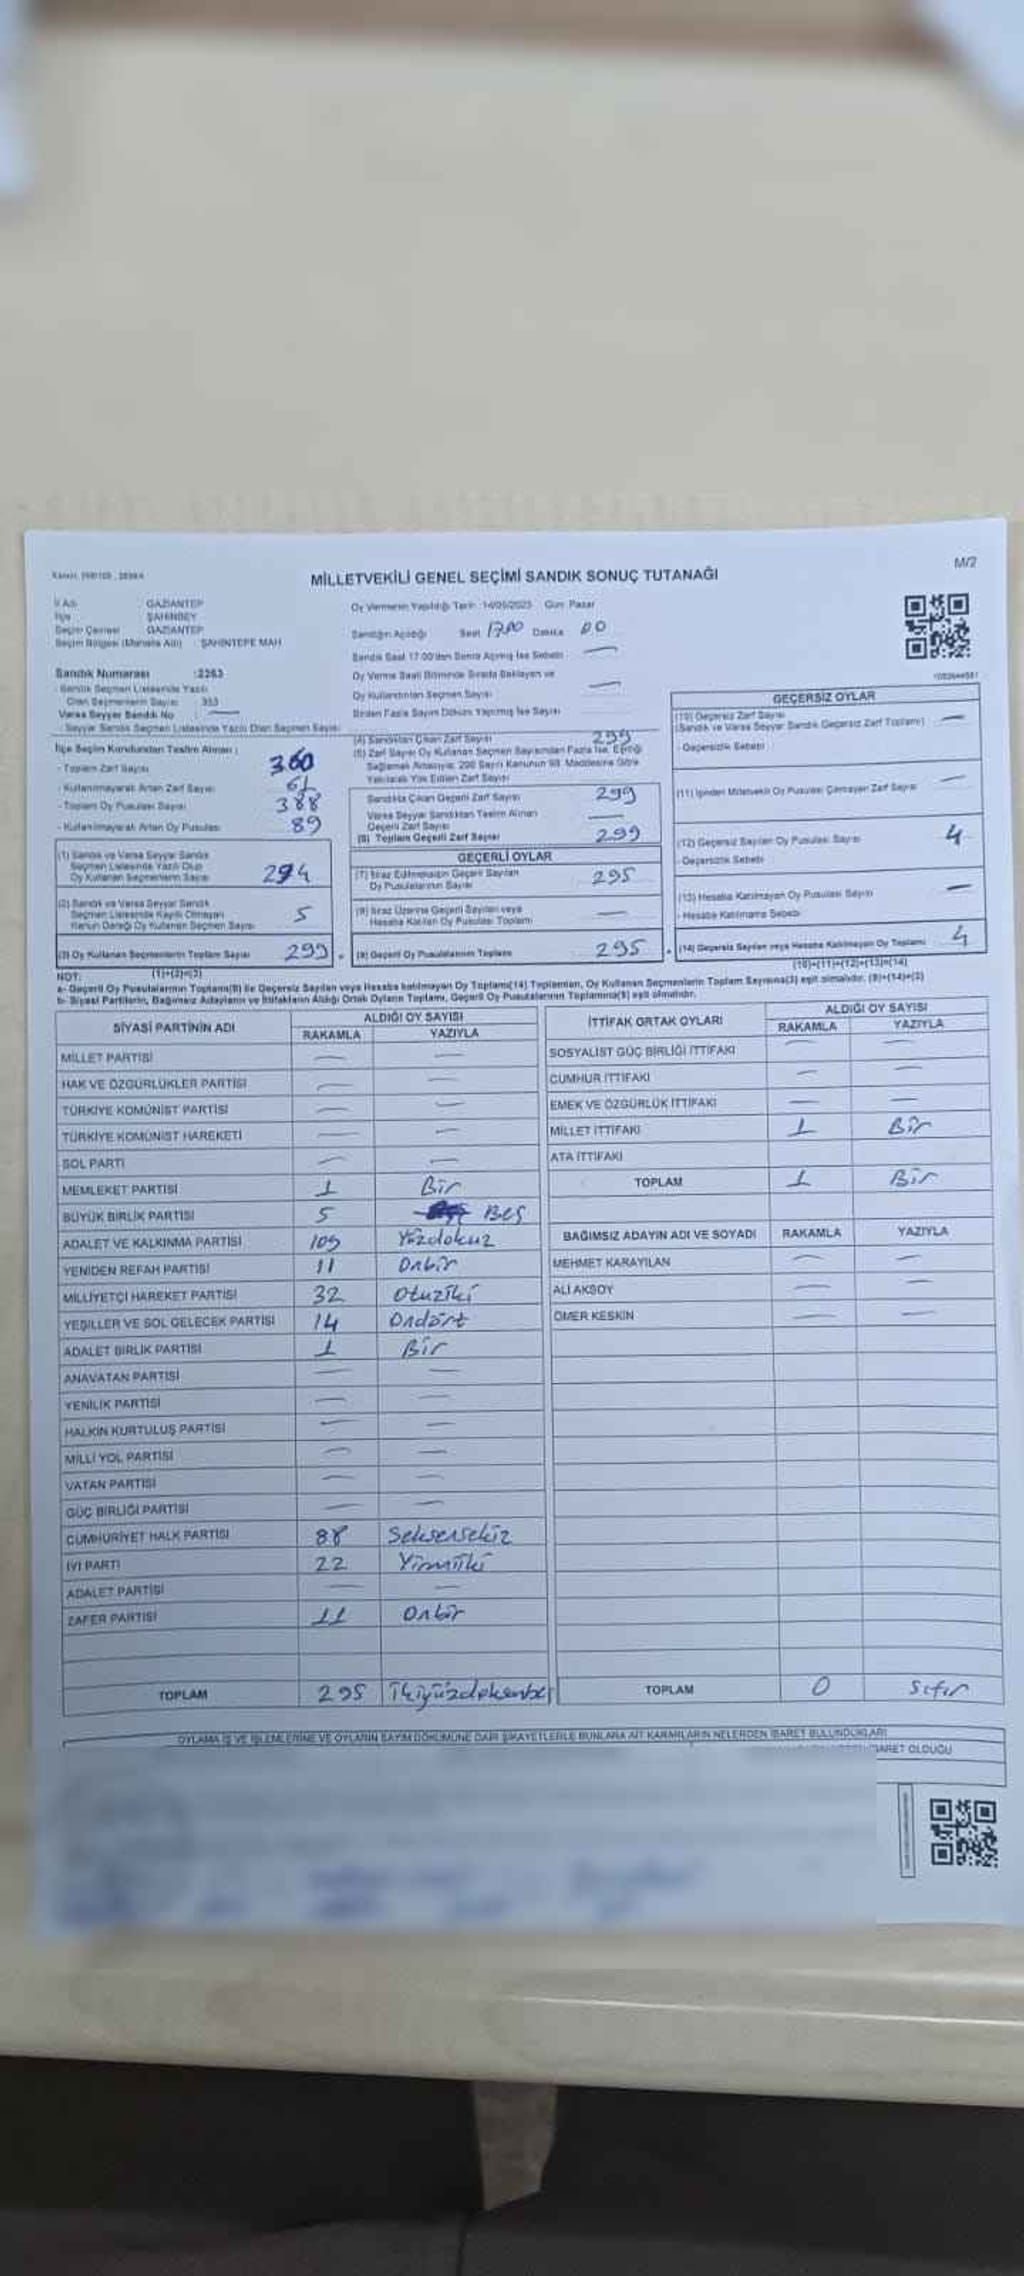 M/2
MİLLETVEKİLİ GENEL SEÇİMİ SANDIK SONUÇ TUTANAĞI
İl Adı : GAZİANTEP
İlçe : ŞAHİNBEY
Seçim Çevresi : GAZİANTEP
Seçim Bölgesi (Mahalle Adı) : ŞAHİNTEPE MAH
Oy Vermenin Yapıldığı Tarih : 14/05/2023 Gün: Pazar
Sandığın Açıldığı Saat 17.00 Dakika 00
Sandık Saat 17:00'den Sonra Açılmış İse Sebebi —
Oy Verme Saati Bitiminde Sırada Bekleyen ve
Oy Kullandırılan Seçmen Sayısı —
Birden Fazla Sayım Döküm Yapılmış İse Sayısı
Sandık Numarası : 2263
- Sandık Seçmen Listesinde Yazılı
Olan Seçmenlerin Sayısı : 353
Varsa Seyyar Sandık No —
- Seyyar Sandık Seçmen Listesinde Yazılı Olan Seçmen Sayısı
İlçe Seçim Kurulundan Teslim Alınan :
- Toplam Zarf Sayısı 360
- Kullanılmayarak Artan Zarf Sayısı 61
- Toplam Oy Pusulası Sayısı 388
- Kullanılmayarak Artan Oy Pusulası 89
(1) Sandık ve Varsa Seyyar Sandık
Seçmen Listesinde Yazılı Olup
Oy Kullanan Seçmenlerin Sayısı 294
(2) Sandık ve Varsa Seyyar Sandık
Seçmen Listesinde Kayıtlı Olmayan
Kanun Gereği Oy Kullanan Seçmen Sayısı 5
(3) Oy Kullanan Seçmenlerin Toplam Sayısı 299
(1)+(2)=(3)
(4) Sandıktan Çıkan Zarf Sayısı 299
(5) Zarf Sayısı Oy Kullanan Seçmen Sayısından Fazla İse, Eşitliği
Sağlamak Amacıyla; 298 Sayılı Kanunun 98. Maddesine Göre
Yakılarak Yok Edilen Zarf Sayısı
Sandıkta Çıkan Geçerli Zarf Sayısı 299
Varsa Seyyar Sandıktan Teslim Alınan
Geçerli Zarf Sayısı —
(6) Toplam Geçerli Zarf Sayısı 299
GEÇERLİ OYLAR
(7) İtiraz Edilmeksizin Geçerli Sayılan
Oy Pusulalarının Sayısı 295
(8) İtiraz Üzerine Geçerli Sayılan veya
Hesaba Katılan Oy Pusulası Toplamı —
(9) Geçerli Oy Pusulalarının Toplamı 295
GEÇERSİZ OYLAR
(10) Geçersiz Zarf Sayısı
(Sandık ve Varsa Seyyar Sandık Geçersiz Zarf Toplamı) —
- Geçersizlik Sebebi
(11) İçinden Milletvekili Oy Pusulası Çıkmayan Zarf Sayısı —
(12) Geçersiz Sayılan Oy Pusulası Sayısı 4
- Geçersizlik Sebebi
(13) Hesaba Katılmayan Oy Pusulası Sayısı —
- Hesaba Katılmama Sebebi
(14) Geçersiz Sayılan veya Hesaba Katılmayan Oy Toplamı 4
(10)+(11)+(12)+(13)=(14)
NOT:
a- Geçerli Oy Pusulalarının Toplamı(9) ile Geçersiz Sayılan veya Hesaba katılmayan Oy Toplamı(14) Toplamları, Oy Kullanan Seçmenlerin Toplam Sayısına(3) eşit olmalıdır. (9)+(14)=(3)
b- Siyasi Partilerin, Bağımsız Adayların ve İttifakların Aldığı Ortak Oyların Toplamı, Geçerli Oy Pusulalarının Toplamına(9) eşit olmalıdır.
SİYASİ PARTİNİN ADI ALDIĞI OY SAYISI
RAKAMLA YAZIYLA
MİLLET PARTİSİ — —
HAK VE ÖZGÜRLÜKLER PARTİSİ — —
TÜRKİYE KOMÜNİST PARTİSİ — —
TÜRKİYE KOMÜNİST HAREKETİ — —
SOL PARTİ — —
MEMLEKET PARTİSİ 1 Bir
BÜYÜK BİRLİK PARTİSİ 5 Beş
ADALET VE KALKINMA PARTİSİ 109 Yüzdokuz
YENİDEN REFAH PARTİSİ 11 Onbir
MİLLİYETÇİ HAREKET PARTİSİ 32 Otuziki
YEŞİLLER VE SOL GELECEK PARTİSİ 14 Ondört
ADALET BİRLİK PARTİSİ 1 Bir
ANAVATAN PARTİSİ — —
YENİLİK PARTİSİ — —
HALKIN KURTULUŞ PARTİSİ — —
MİLLİ YOL PARTİSİ — —
VATAN PARTİSİ — —
GÜÇ BİRLİĞİ PARTİSİ — —
CUMHURİYET HALK PARTİSİ 88 Seksensekiz
İYİ PARTİ 22 Yirmiiki
ADALET PARTİSİ — —
ZAFER PARTİSİ 11 Onbir
TOPLAM 295 İkiyüzdoksanbeş
İTTİFAK ORTAK OYLARI ALDIĞI OY SAYISI
RAKAMLA YAZIYLA
SOSYALİST GÜÇ BİRLİĞİ İTTİFAKI — —
CUMHUR İTTİFAKI — —
EMEK VE ÖZGÜRLÜK İTTİFAKI — —
MİLLET İTTİFAKI 1 Bir
ATA İTTİFAKI
TOPLAM 1 Bir
BAĞIMSIZ ADAYIN ADI VE SOYADI RAKAMLA YAZIYLA
MEHMET KARAYILAN — —
ALİ AKSOY — —
ÖMER KESKİN — —
TOPLAM 0 Sıfır
OYLAMA İŞ VE İŞLEMLERİNE VE OYLARIN SAYIM DÖKÜMÜNE DAİR ŞİKAYETLERLE BUNLARA AİT KARARLARIN NELERDEN İBARET BULUNDUKLARI
OLDUĞU